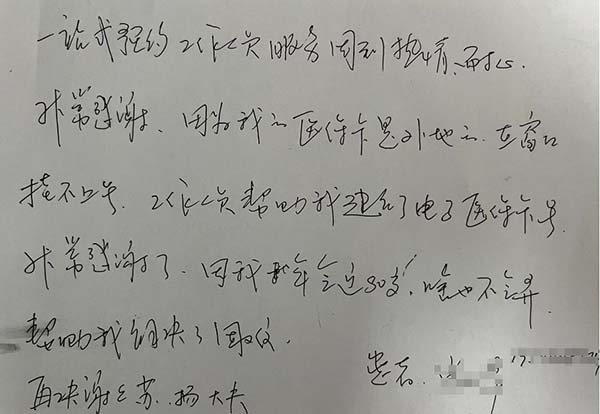 一站式预约工作人员服务周到热情、耐心
非常感谢、因为我的医保卡是外地的、在窗口
挂不上号、工作人员帮助我建了电子医保卡号
非常感谢了、因我年会近80岁、啥也不会弄
帮助我解决了困难
再次谢谢苏、杨大夫
患者